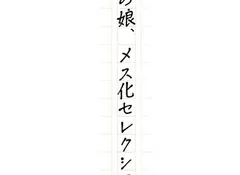 の娘、メス化セレクシ